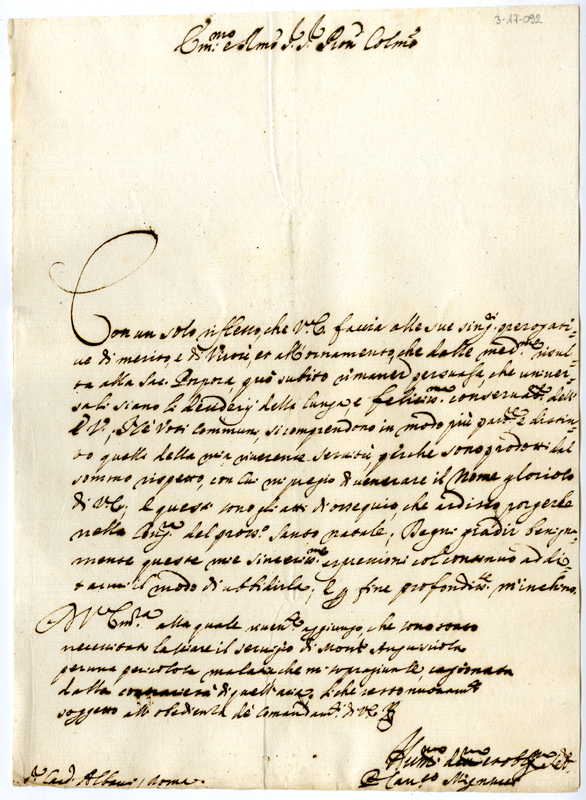 3-17-092
Em.mo e Rmo S.r S.r Pron Colmo
Con un solo riflesso, che V.E. faccia alle sue sing.i prerogati-
ue di merito, e di Virtù, et all'ornamento, che dalle med.me risul-
ta alla Sac. Porpora, può subito rimaner persuasa, che univer-
sali siano li desiderij della lunga, e felicis.ma conservat.e dell'
E.V., Ne' Voti Communi, si comprendono in modo più part.e e distin-
to quelli della mia riuerente seruitù perche sono prodotti dal
sommo rispetto, con cui mi pregio di venerare il Nome glorioso
di V.E.; e questi sono gli atti di ossequio, che ardisco porgerle
nella Cong.a del pross.o Santo natale; Degni gradir benigna-
mente queste mie sinceriss.me espressioni col continuo addi-
tarmi il modo di ubbidirla; e p fine profondiss.te m'inchino.
D V. Em.za alla quale riuer.te aggiungo, che sono stato
necessitato lasciare il seruigio di Mons.
per una pericolosa malatia che mi sopragiunse, cagionata
dalla di quell'aria, siche resto nuouam.te
soggetto all'obedienza de Comandam.ti di V.E.
Hum.mo deu.mo et obblig.mo Se.
S.r Card. Albani / Roma.